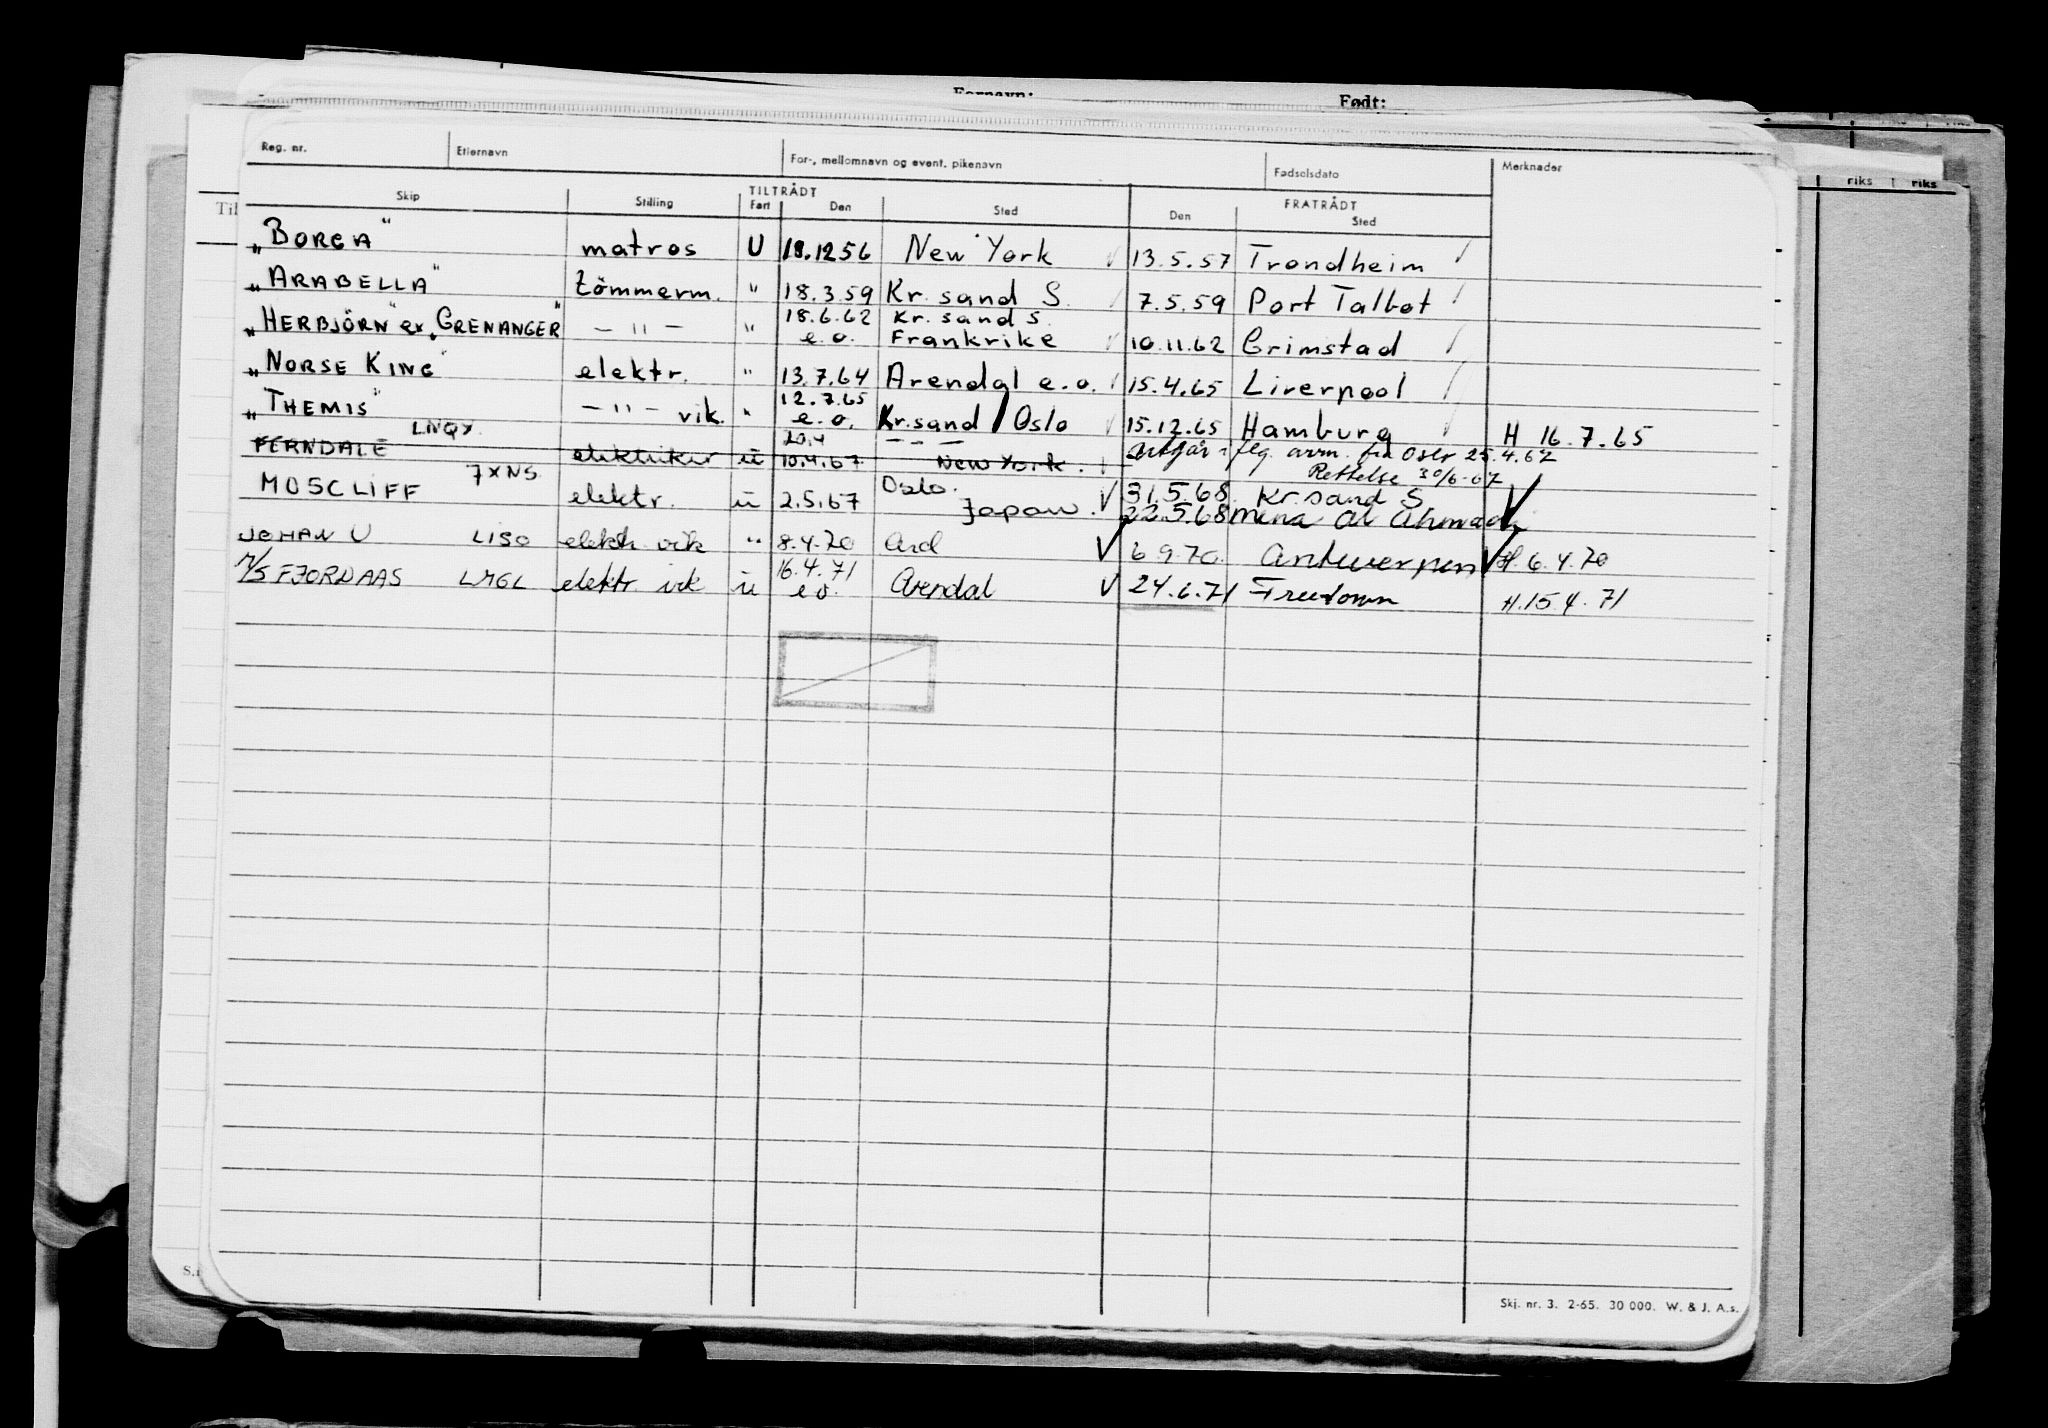 Fornavn: Født:
Reg. nr. Etternavn For-, mellomnavn og event. pikenavn Fødselsdato Merknader
riks riks
TILTRÅDT FRATRÅDT
Skip Stilling Fart Den Sted Den Sted
Til
„BORGA" matros U 18.12 56 New York √ 13.5.57 Trondheim √
„ARABELLA" tömmerm. " 18.3.59 Kr. sand S. √ 7.5.59 Port Talbot √
18.6.62 Kr. sand S.
„HERBJÖRN" ex „GRENANGER" — " — " e.o. Frankrike √ 10.11.62 Grimstad √
„NORSE KING" elektr. " 13.7.64 Arendal e.o. √ 15.4.65 Liverpool √
12.7.65
„THEMIS" — " — vik. " e.o. Kr.sand / Oslo √ 15.12.65 Hamburg √ H 16.7.65
LNQY 20.4 — — —
FERNDALE elektriker u 10.4.67 New York. √ utgår i flg. avm. fra Oslo 25.4.67
Rettelse 30/6-67
MOSCLIFF 7XNS elektr. u 2.5.67 Oslo. Japan. √ 31.5.68. Kr.sand S √
22.5.68 Mena al Ahmadi
JOHAN U LISO elektr vik " 8.4.70 Ard √ 6 9.70. Antwerpen √ H. 6.4.70
16.4.71
M/S FJORDAAS LMGL elektr. vik u e o. Arendal √ 24.6.71 Freetown H.15.4.71
Skj. nr. 3. 2-65. 30 000. W. & J. A.s.